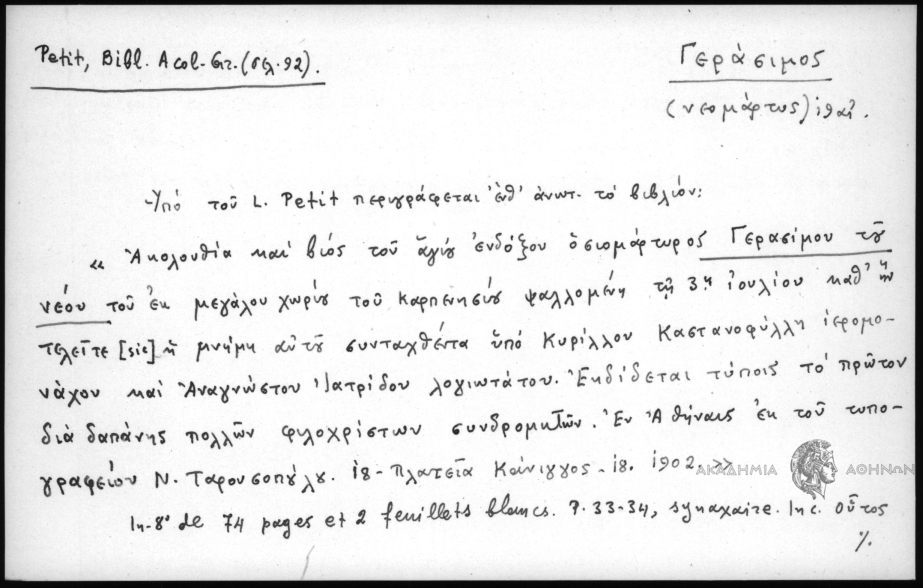 Petit, Bibl. Acol. Gr. (σελ. 92).
Γεράσιμος
(νεομάρτυς) ιθ' αἰ.
Ὑπό τοῦ L. Petit περιγράφεται ἐνθ' ἀνωτ. τό βιβλίον:
« Ἀκολουθία καί βίος τοῦ ἁγίου ἐνδόξου ὁσιομάρτυρος Γερασίμου τοῦ
νέου τοῦ ἐκ μεγάλου χωρίου τοῦ Καρπενησίου ψαλλομένη τῇ 3ῃ Ἰουλίου καθ' ἥν
τελεῖτε [sic] ἡ μνήμη αὐτοῦ συνταχθέντα ὑπό Κυρίλλου Καστανοφύλλη ἱερομο-
νάχου καί Ἀναγνώστου Ἰατρίδου λογιωτάτου. Ἐκδίδεται τύποις τό πρῶτον
διά δαπάνης πολλῶν φιλοχρίστων συνδρομητῶν. Ἐν Ἀθήναις ἐκ τοῦ τυπο-
γραφείου Ν. Ταρουσοπούλου. 18 - Πλατεῖα Κάνιγγος - 18. 1902. »
ΑΚΑΔΗΜΙΑ ΑΘΗΝΩΝ
In-8° de 74 pages et 2 feuillets blancs. P. 33-34, synaxaire. Inc. Οὗτος
%.